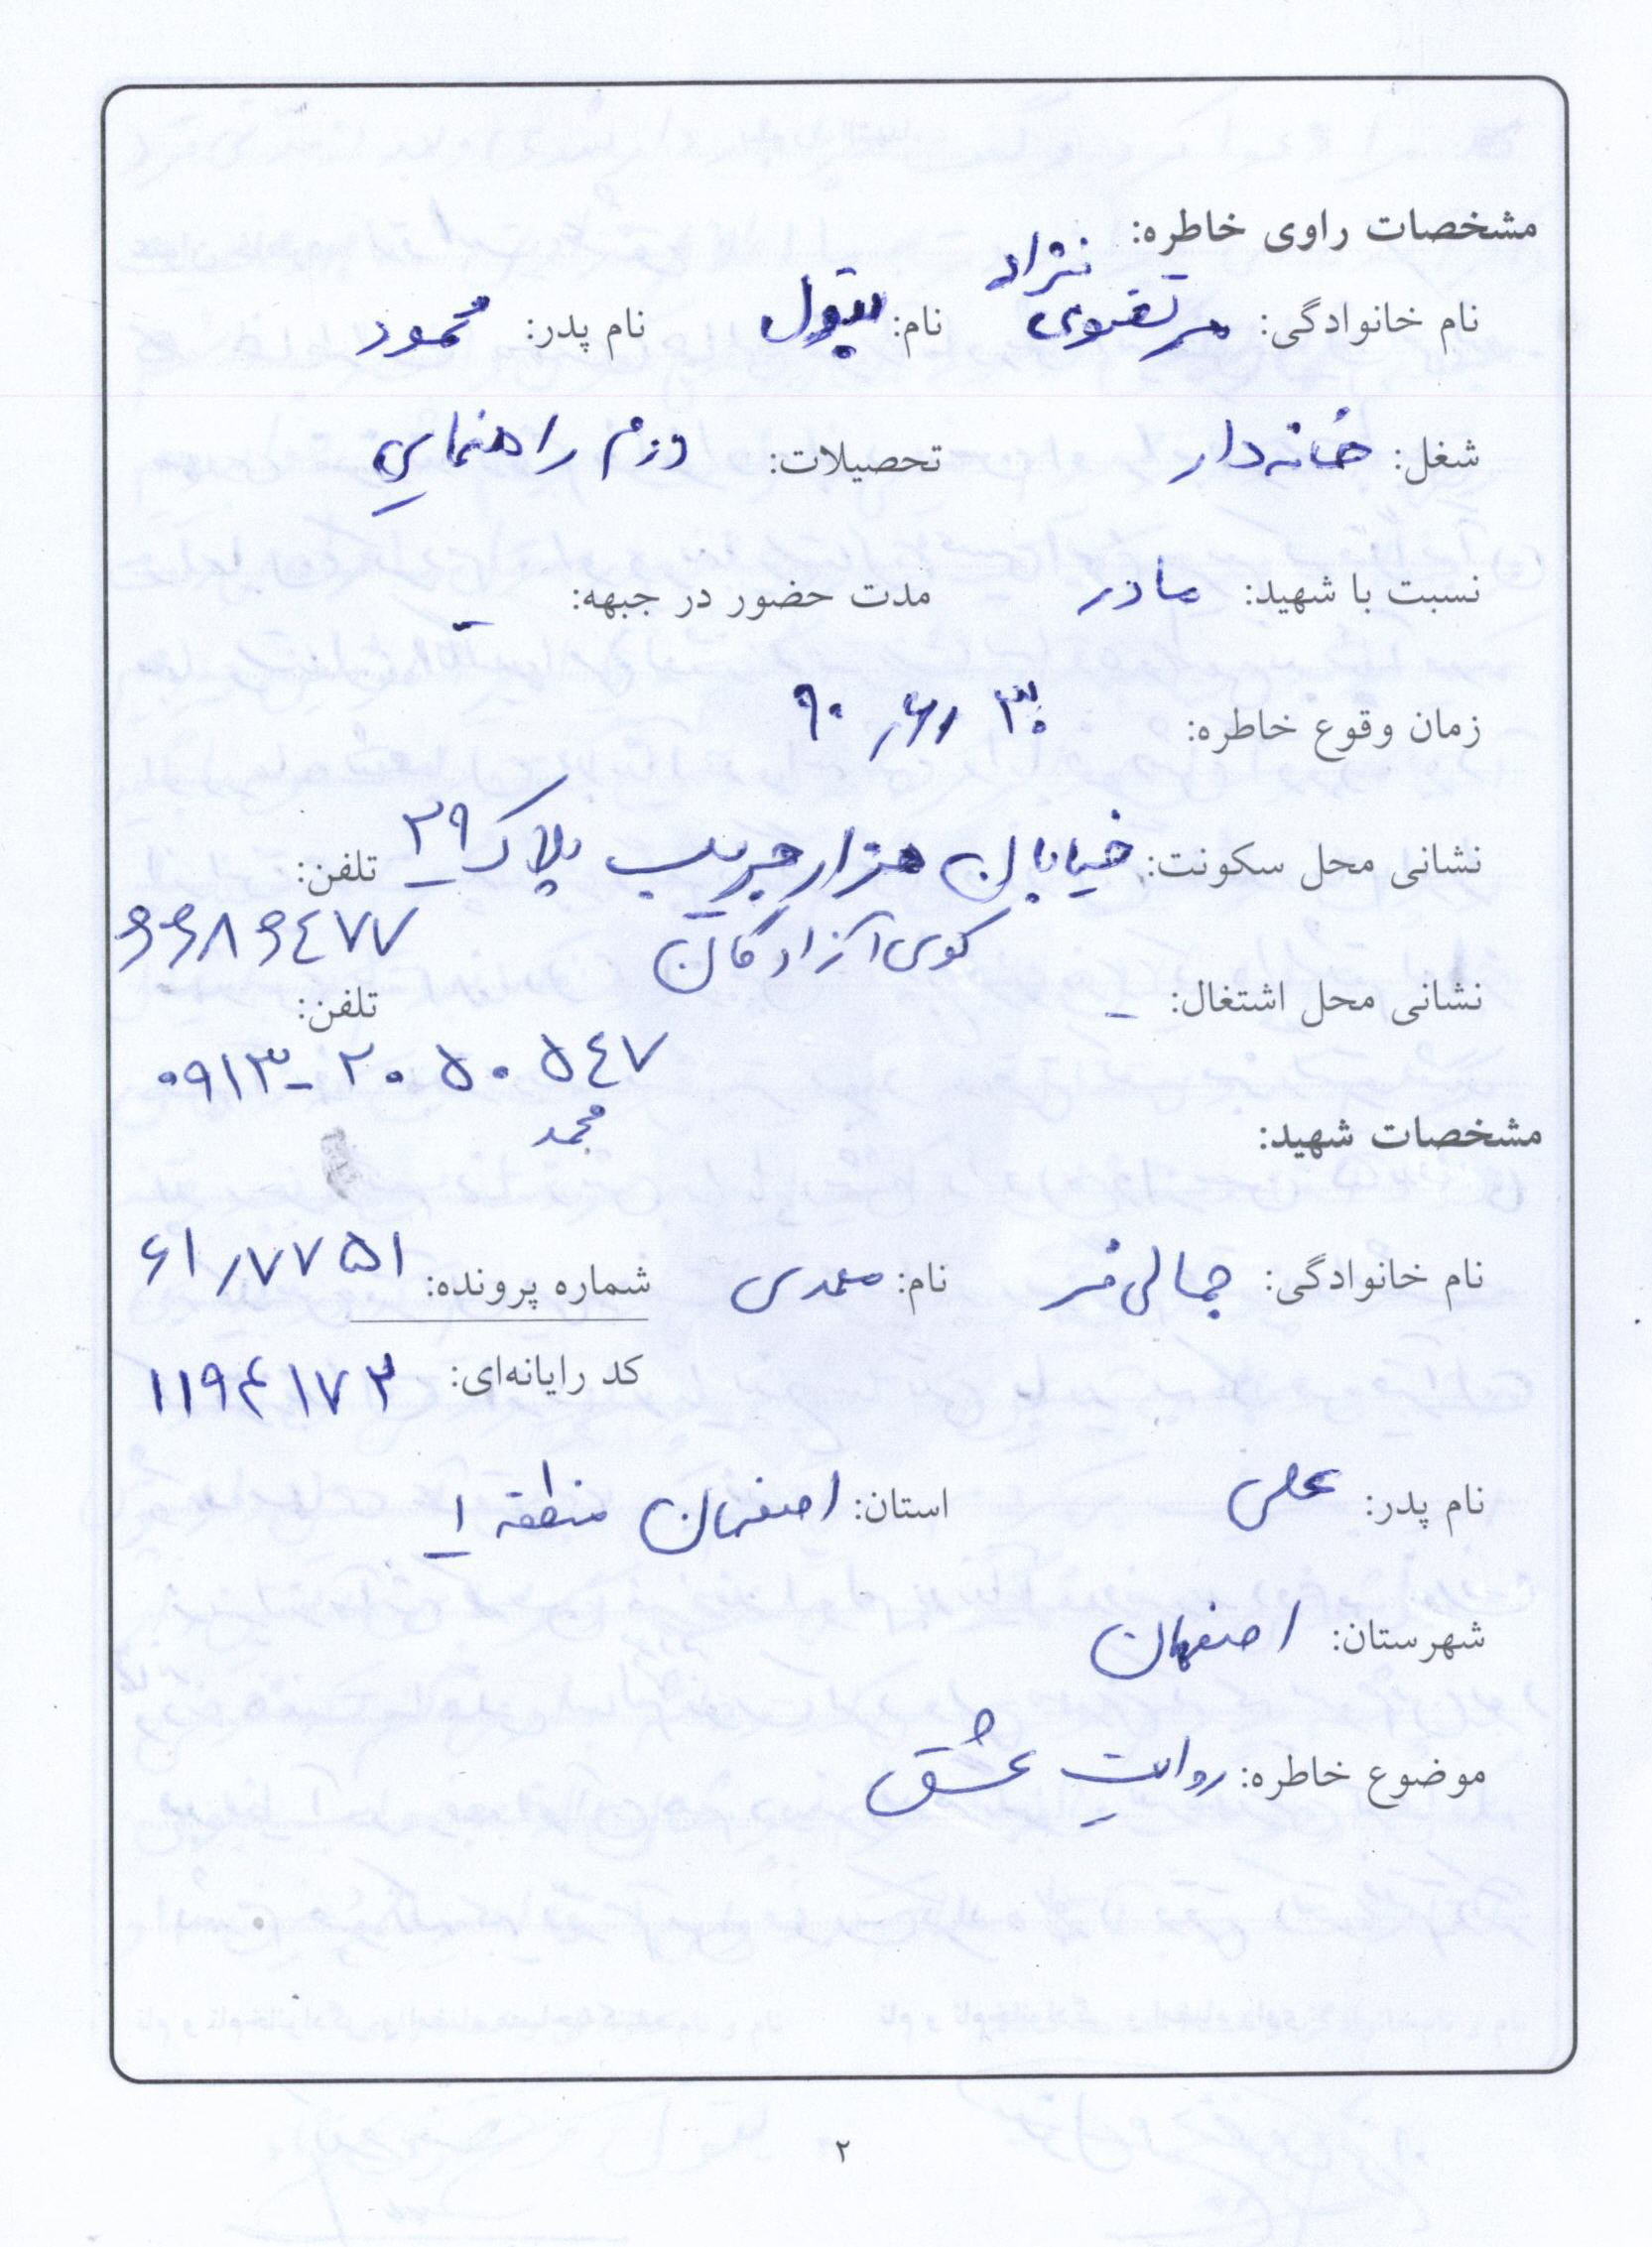 مشخصات راوی خاطره:
نام خانوادگی: مرتضوی نژاد نام: بتول نام پدر: محمود
شغل: خانه‌دار تحصیلات: دوم راهنمایی
نسبت با شهید: مادر مدت حضور در جبهه: -
زمان وقوع خاطره: ۳۰ / ۶ / ۹۰
نشانی محل سکونت: خیابان هزار جریب پلاک ۲۹ تلفن:
کوی آزادگان ۶۶۸۶۴۷۷
نشانی محل اشتغال: - تلفن:
۰۹۱۳-۲۰۵۰۵۴۷
محمد
مشخصات شهید:
نام خانوادگی: جمالی فر نام: مهدی شماره پرونده: ۶۱/۷۷۵۱
کد رایانه‌ای: ۱۱۹۴۱۷۳
نام پدر: علی استان: اصفهان منطقه ۱
شهرستان: اصفهان
موضوع خاطره: روایت عشق
۲